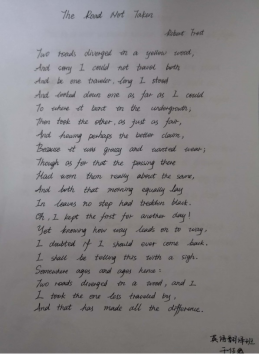 The Road Not Taken
Robert Frost
Two roads diverged in a yellow wood,
And sorry I could not travel both
And be one traveler, long I stood
And looked down one as far as I could
To where it bent in the undergrowth;
Then took the other, as just as fair,
And having perhaps the better claim,
Because it was grassy and wanted wear;
Though as for that the passing there
Had worn them really about the same,
And both that morning equally lay
In leaves no step had trodden black.
Oh, I kept the first for another day!
Yet knowing how way leads on to way,
I doubted if I should ever come back.
I shall be telling this with a sigh
Somewhere ages and ages hence:
Two roads diverged in a wood, and I
I took the one less traveled by,
And that has made all the difference.